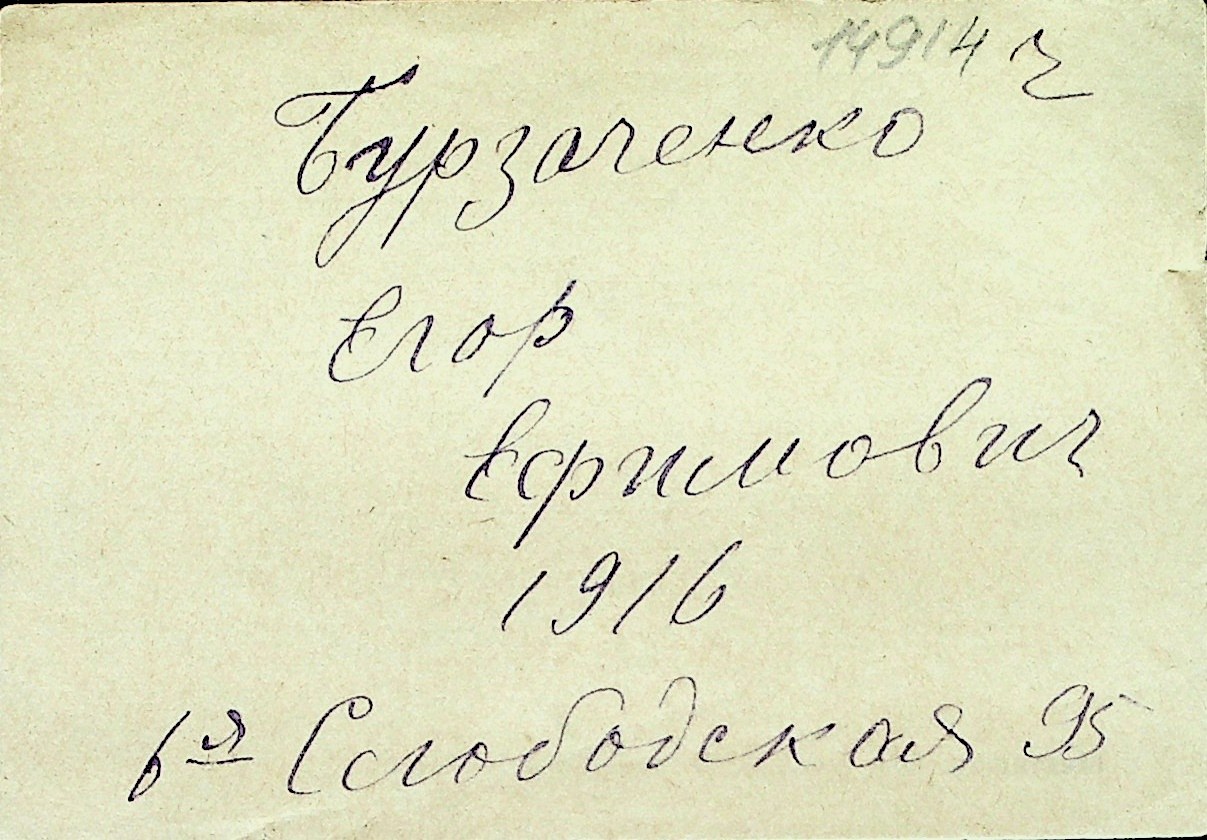 14914 г
Бурзаченко
Егор
Ефимович
1916
6-я Слободская 95